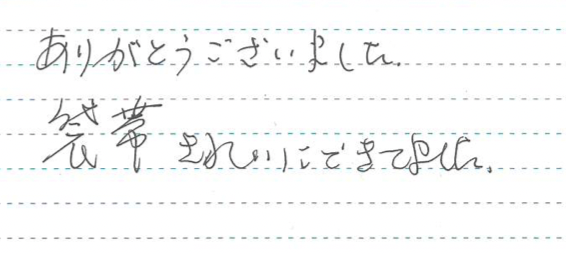 ありがとうございました。
袋帯きれいにできてました。